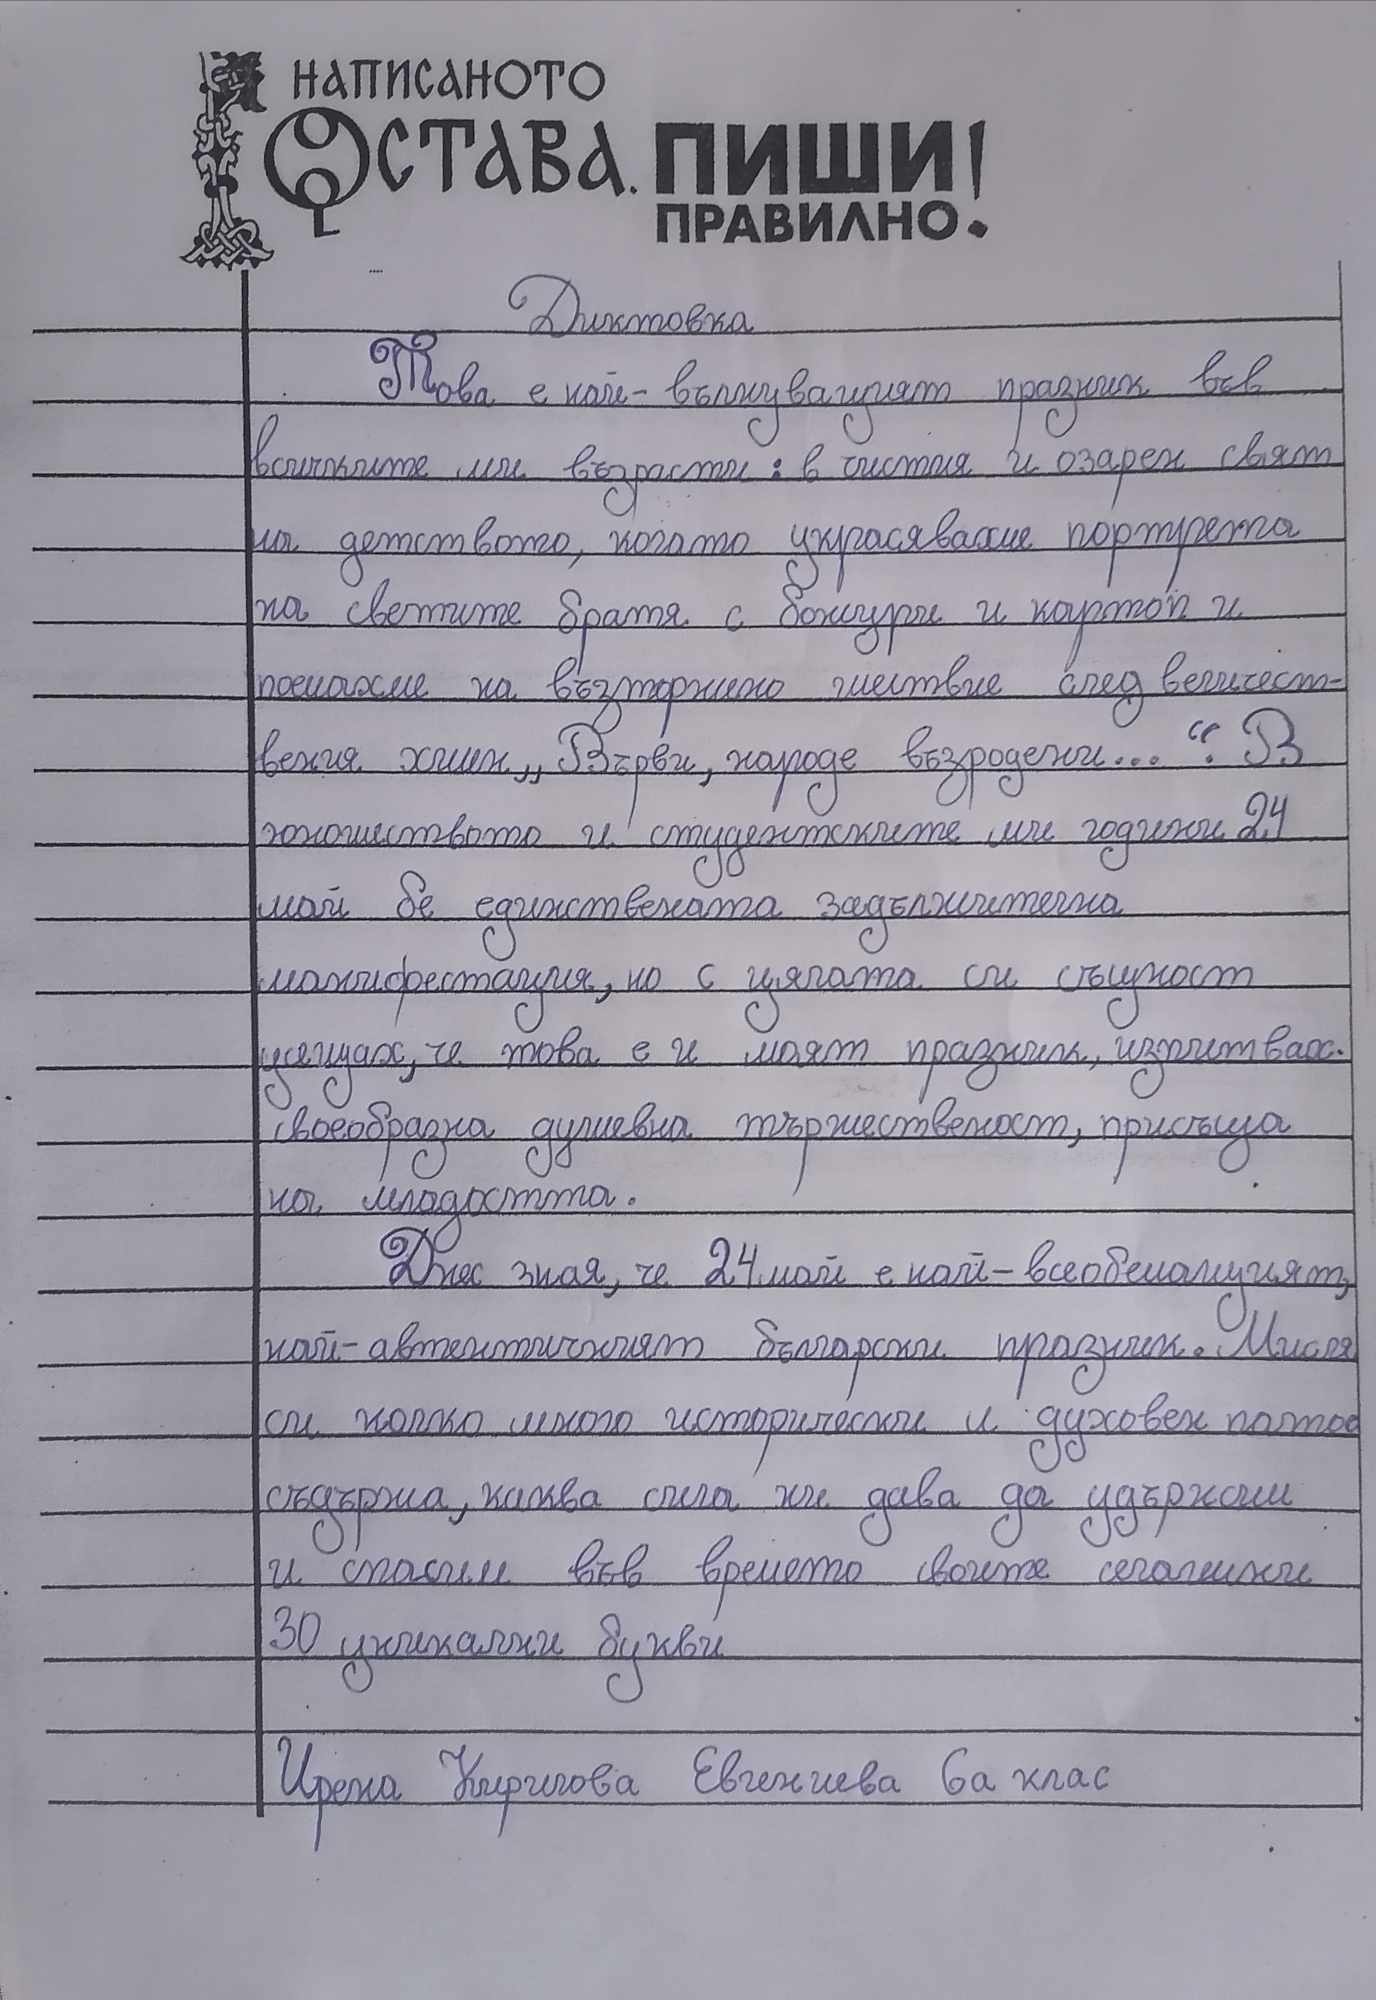 НАПИСАНОТО
ОСТАВА. ПИШИ
ПРАВИЛНО!
Диктовка
Това е най-вълнуващият празник във
всичките ми възрасти: в чистия и озарен свят
на детството, когато украсявахме портрета
на светите братя с божури и картоп и
поемахме на възторжено шествие след величест-
вения химн „Върви, народе възродени...“. В
юношеството и студентските ми години 24
май бе единствената задължителна
манифестация, но с цялата си същност
усещах, че това е и моят празник, изпитвах
своеобразна душевна тържественост, присъща
на младостта.
Днес зная, че 24 май е най-всеобемащият,
най-автентичният български празник. Мисля
си колко много исторически и духовен патос
съдържа, каква сила ни дава да удържам
и спасим във времето своите сегашни
30 уникални букви
Ирена Кирилова Евгениева 6а клас